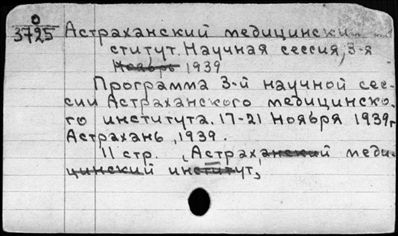 0
3725
Астраханский медицински
ститут. Научная сессия, 3-я
Ноябрь 1939
Программа 3-й научной сес-
сии Астраханского медицинско-
го института. 17-21 ноября 1939г
Астрахань, 1939.
11 стр. (Астраханский меди-
цинский институт)